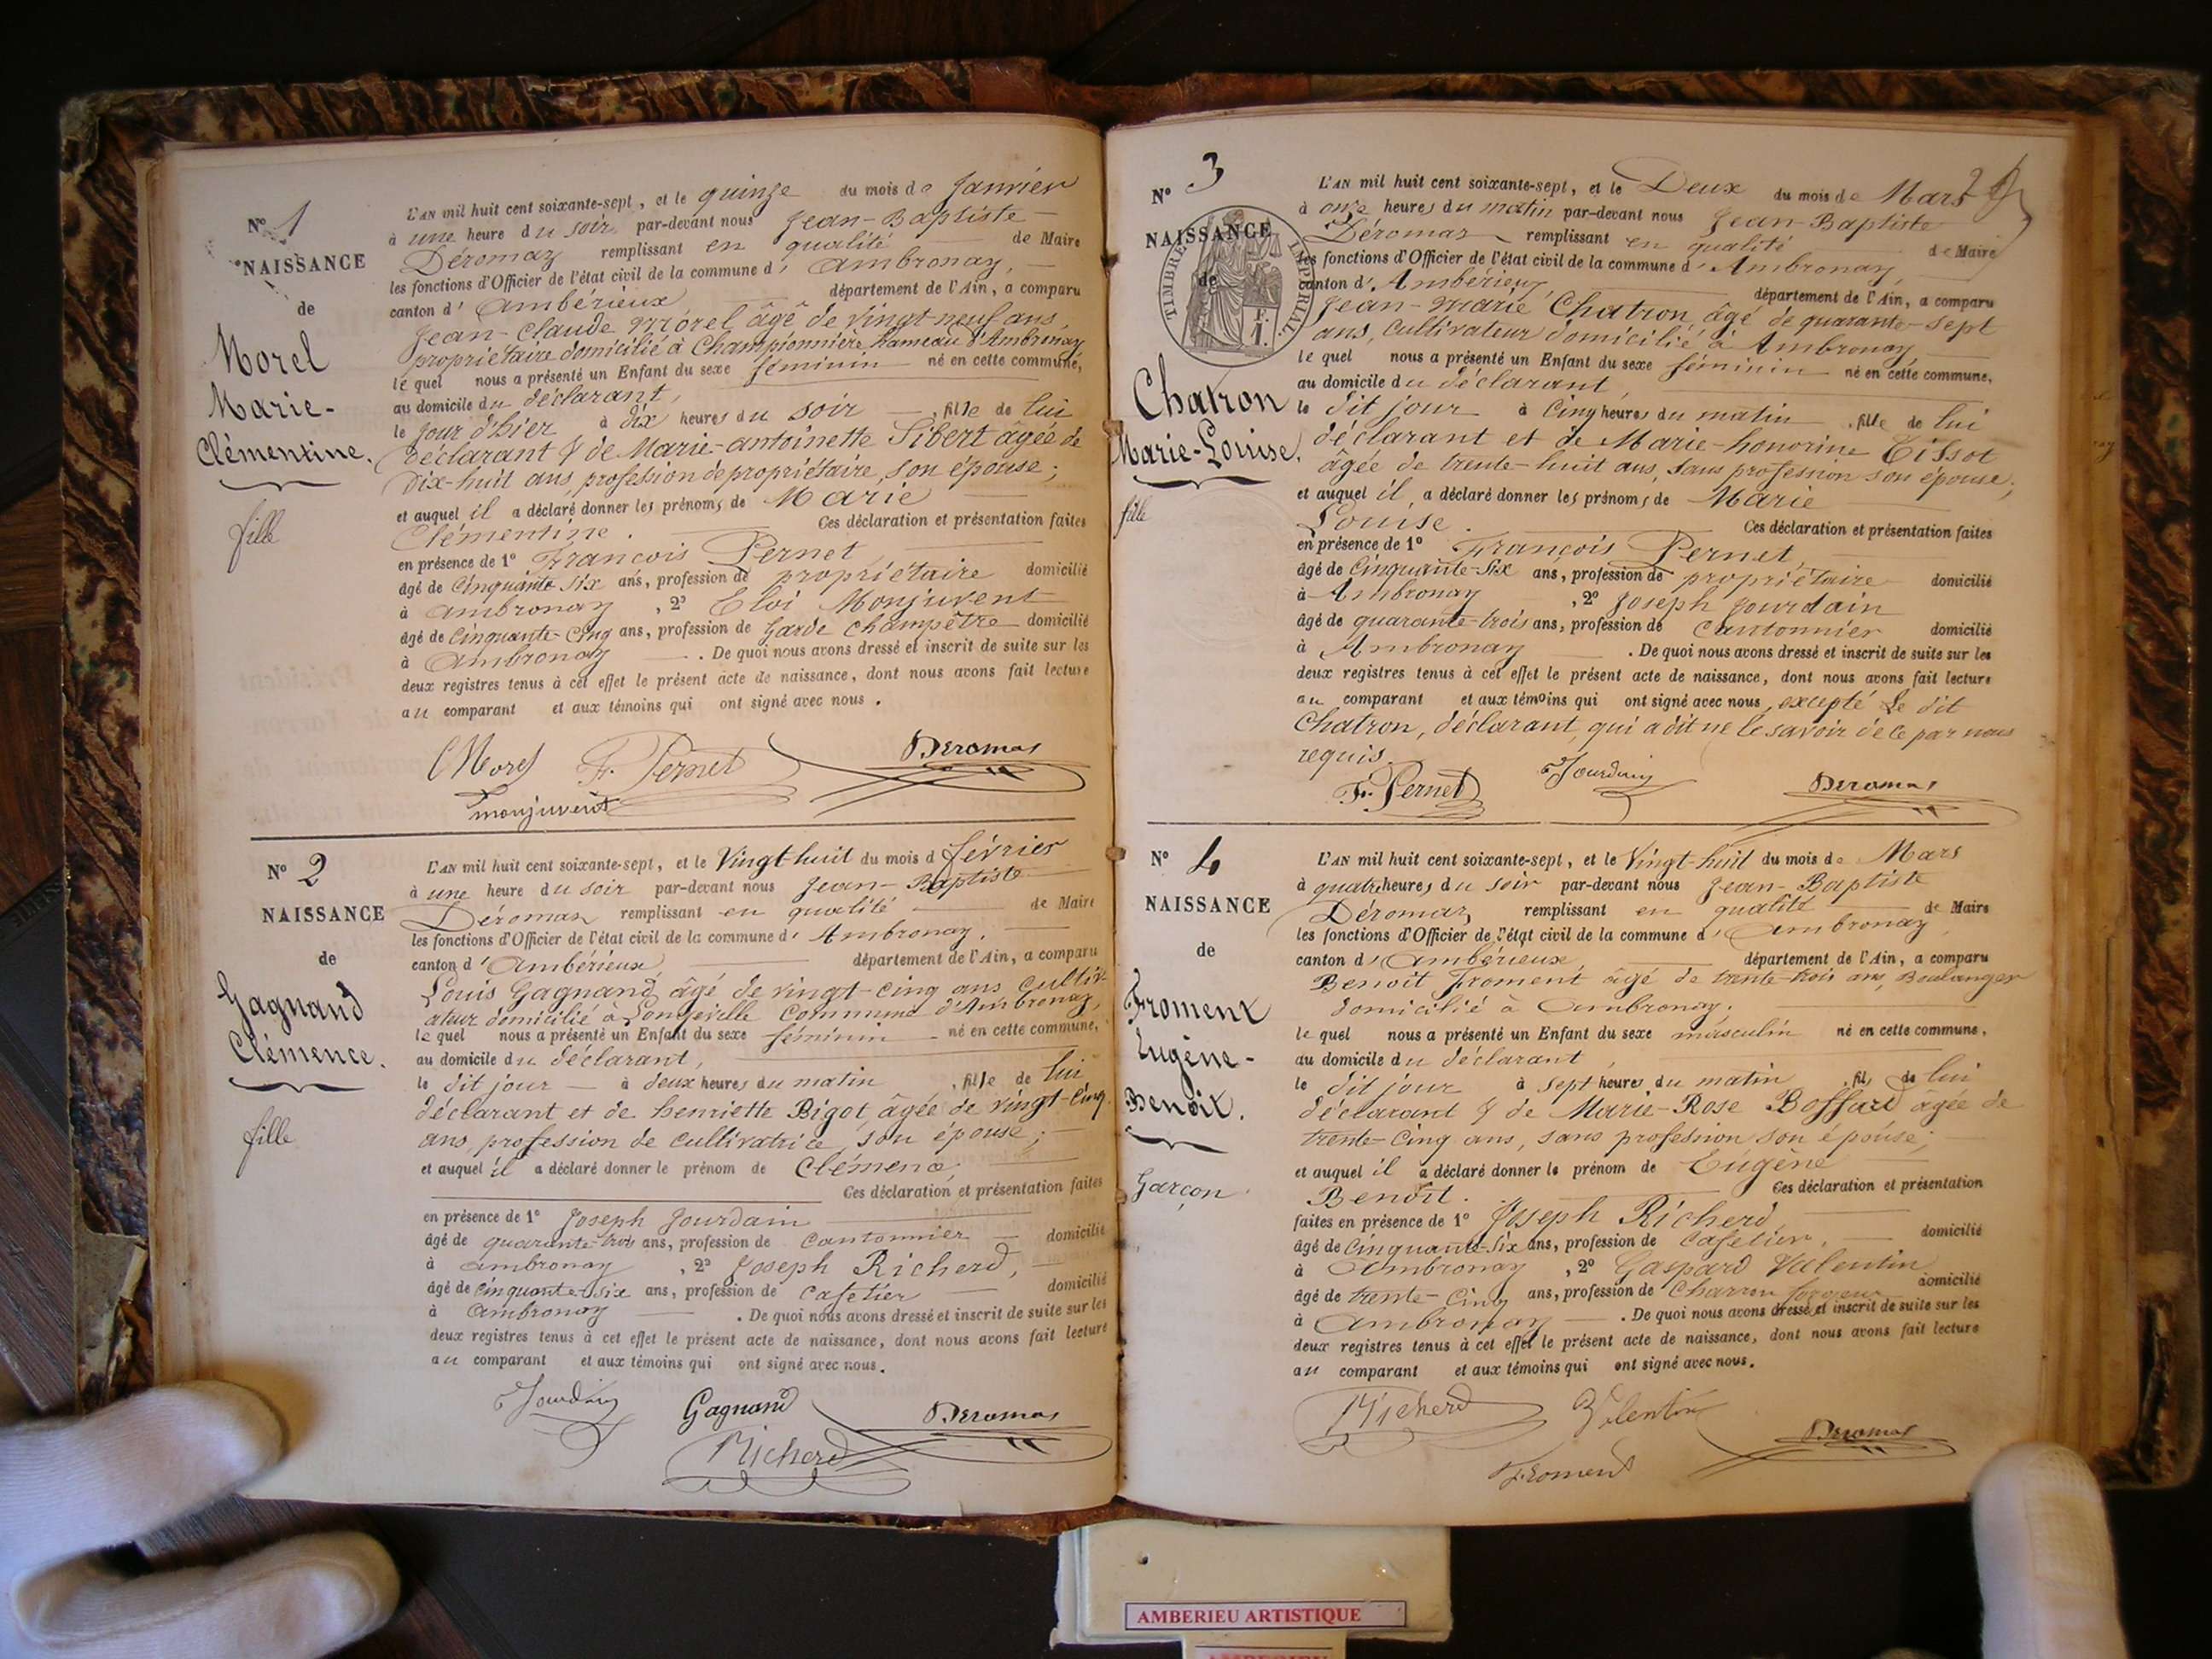 N° 1
NAISSANCE
de
Morel
Marie-
Clémentine.
fille
L'AN mil huit cent soixante-sept, et le quinze du mois de Janvier
à une heure du soir par-devant nous Jean-Baptiste
Déromaz remplissant en qualité de Maire
les fonctions d'Officier de l'état civil de la commune d'Ambronay,
canton d'Ambérieux département de l'Ain, a comparu
Jean-Claude Morel âgé de vingt-neuf ans,
propriétaire domicilié à Championnière hameau d'Ambronay
lequel nous a présenté un Enfant du sexe féminin né en cette commune,
au domicile du déclarant,
le jour d'hier à dix heures du soir, fille de lui
déclarant & de Marie-antoinette Sibert âgée de
dix-huit ans, profession de propriétaire, son épouse;
et auquel il a déclaré donner les prénoms de Marie
Clémentine. Ces déclaration et présentation faites
en présence de 1° François Pernet,
âgé de Cinquante-six ans, profession de propriétaire domicilié
à Ambronay, 2° Eloi Monjuvent
âgé de Cinquante-cinq ans, profession de Garde champêtre domicilié
à Ambronay. De quoi nous avons dressé et inscrit de suite sur les
deux registres tenus à cet effet le présent acte de naissance, dont nous avons fait lecture
au comparant et aux témoins qui ont signé avec nous.
CMorel F. Pernet Deromas
monjuvent
N° 2
NAISSANCE
de
Gagnand
Clémence.
fille
L'AN mil huit cent soixante-sept, et le Vingt-huit du mois d février
à une heure du soir par-devant nous Jean-Baptiste
Déromaz remplissant en qualité de Maire
les fonctions d'Officier de l'état civil de la commune d'Ambronay,
canton d'Ambérieux département de l'Ain, a comparu
Louis Gagnand, âgé de vingt-cinq ans cultiv-
ateur domicilié à Longeville Commune d'Ambronay,
lequel nous a présenté un Enfant du sexe féminin né en cette commune,
au domicile du déclarant,
le dit jour à deux heures du matin, fille de lui
déclarant et de henriette Bigot, âgée de vingt-cinq
ans, profession de cultivatrice, son épouse;
et auquel il a déclaré donner le prénom de Clémence
Ces déclaration et présentation faites
en présence de 1° Joseph Jourdain
âgé de quarante-trois ans, profession de Cantonnier domicilié
à Ambronay, 2° Joseph Richerd,
âgé de Cinquante-six ans, profession de Cafetier domicilié
à Ambronay. De quoi nous avons dressé et inscrit de suite sur les
deux registres tenus à cet effet le présent acte de naissance, dont nous avons fait lecture
au comparant et aux témoins qui ont signé avec nous.
Jourdain Gagnand Deromas
Richerd
N° 3
NAISSANCE
de
TIMBRE IMPÉRIAL
Chatron
Marie-Louise.
fille
L'AN mil huit cent soixante-sept, et le Deux du mois de Mars
à onze heures du matin par-devant nous Jean-Baptiste
Déromaz remplissant en qualité de Maire
les fonctions d'Officier de l'état civil de la commune d'Ambronay
canton d'Ambérieux département de l'Ain, a comparu
Jean-Marie Chatron, âgé de quarante-sept
ans, Cultivateur domicilié à Ambronay
lequel nous a présenté un Enfant du sexe féminin né en cette commune,
au domicile du déclarant,
le dit jour à Cinq heures du matin, fille de lui
déclarant et de Marie-honorine Tissot
âgée de trente-huit ans, sans profession son épouse,
et auquel il a déclaré donner les prénoms de Marie
Louise. Ces déclaration et présentation faites
en présence de 1° François Pernet,
âgé de Cinquante-six ans, profession de propriétaire domicilié
à Ambronay, 2° Joseph Jourdain
âgé de quarante-trois ans, profession de Cantonnier domicilié
à Ambronay. De quoi nous avons dressé et inscrit de suite sur les
deux registres tenus à cet effet le présent acte de naissance, dont nous avons fait lecture
au comparant et aux témoins qui ont signé avec nous, excepté le dit
Chatron, déclarant, qui a dit ne le savoir de ce par nous
requis.
F. Pernet Jourdain Deromas
N° 4
NAISSANCE
de
Froment
Eugène-
Benoît.
Garçon
L'AN mil huit cent soixante-sept, et le Vingt-huit du mois de Mars
à quatre heures du soir par-devant nous Jean-Baptiste
Déromaz, remplissant en qualité de Maire
les fonctions d'Officier de l'état civil de la commune d'Ambronay
canton d'Ambérieux département de l'Ain, a comparu
Benoît Froment âgé de trente-trois ans, Boulanger
domicilié à Ambronay.
lequel nous a présenté un Enfant du sexe masculin né en cette commune,
au domicile du déclarant,
le dit jour à sept heures du matin, fils de lui
déclarant & de Marie-Rose Bossard agée de
trente-cinq ans, sans profession son épouse;
et auquel il a déclaré donner le prénom de Eugène
Benoît. Ces déclaration et présentation
faites en présence de 1° Joseph Richerd,
âgé de Cinquante-six ans, profession de Cafetier, domicilié
à Ambronay, 2° Gaspard Valentin
âgé de trente-Cinq ans, profession de Charron forgeur domicilié
à Ambronay. De quoi nous avons dressé et inscrit de suite sur les
deux registres tenus à cet effet le présent acte de naissance, dont nous avons fait lecture
au comparant et aux témoins qui ont signé avec nous.
Richerd Valentin Deromas
Froment
AMBERIEU ARTISTIQUE